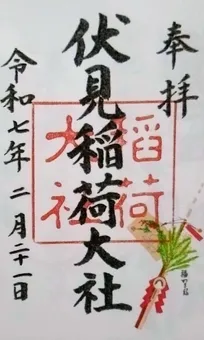 奉拝
伏見稲荷大社
稲荷
大社
令和七年二月二十一日